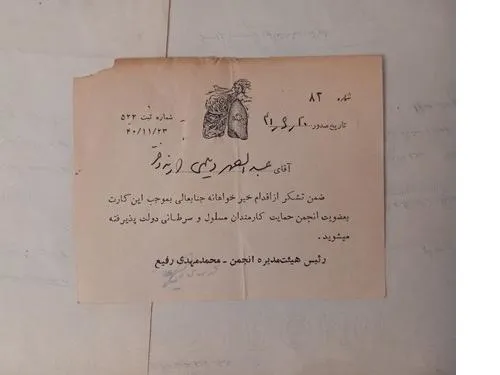 شماره ۸۲
شماره ثبت ۵۲۲
تاریخ صدور
۴۰/۱۱/۲۳
آقای
ضمن تشکر از اقدام خیر خواهانه جنابعالی بموجب این کارت
بعضویت انجمن حمایت کارمندان مسلول و سرطانی دولت پذیرفته
میشوید.
رئیس هیئت مدیره انجمن - محمدمهدی رفیع